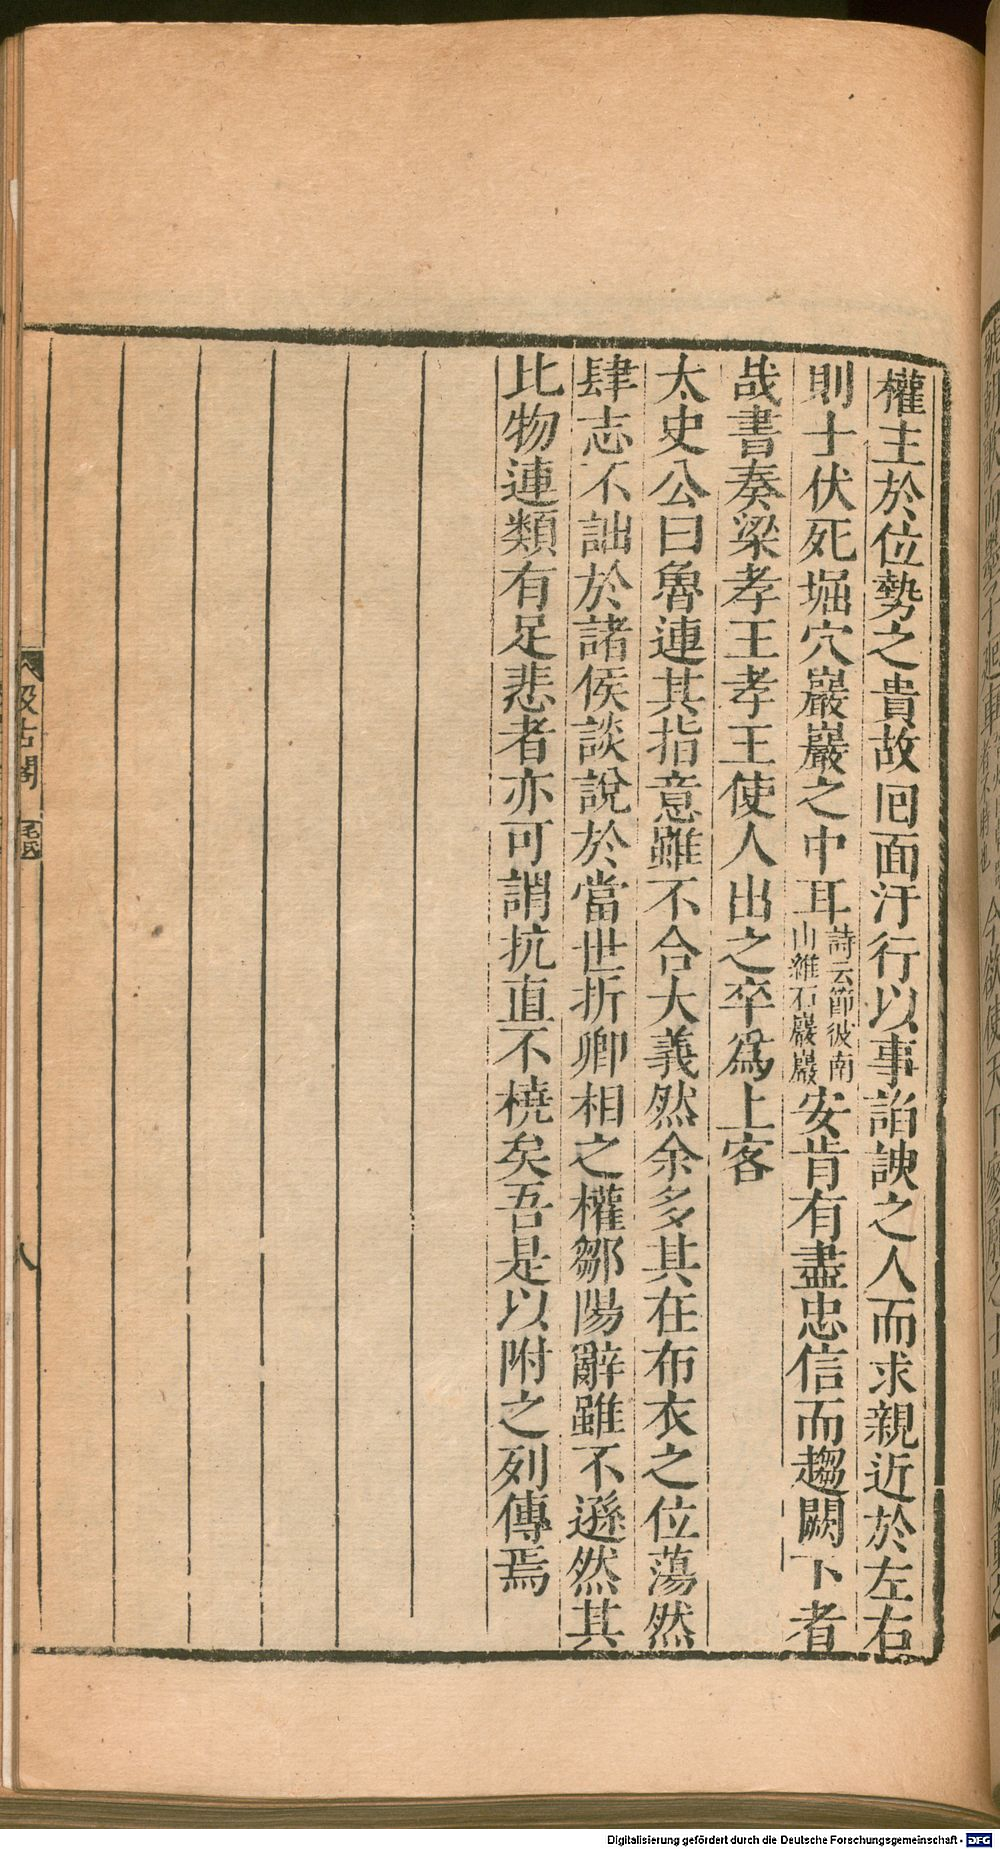 權主於位勢之貴故囘面汙行以事諂諛之人而求親近於左右
則士伏死堀穴巖巖之中耳詩云節彼南山維石巖巖安肯有盡忠信而趨闕下者
哉書奏梁孝王孝王使人出之卒爲上客
太史公曰魯連其指意雖不合大義然余多其在布衣之位蕩然
肆志不詘於諸侯談說於當世折卿相之權鄒陽辭雖不遜然其
比物連類有足悲者亦可謂抗直不橈矣吾是以附之列傳焉
汲古閣
毛氏
八
Digitalisierung gefördert durch die Deutsche Forschungsgemeinschaft - DFG